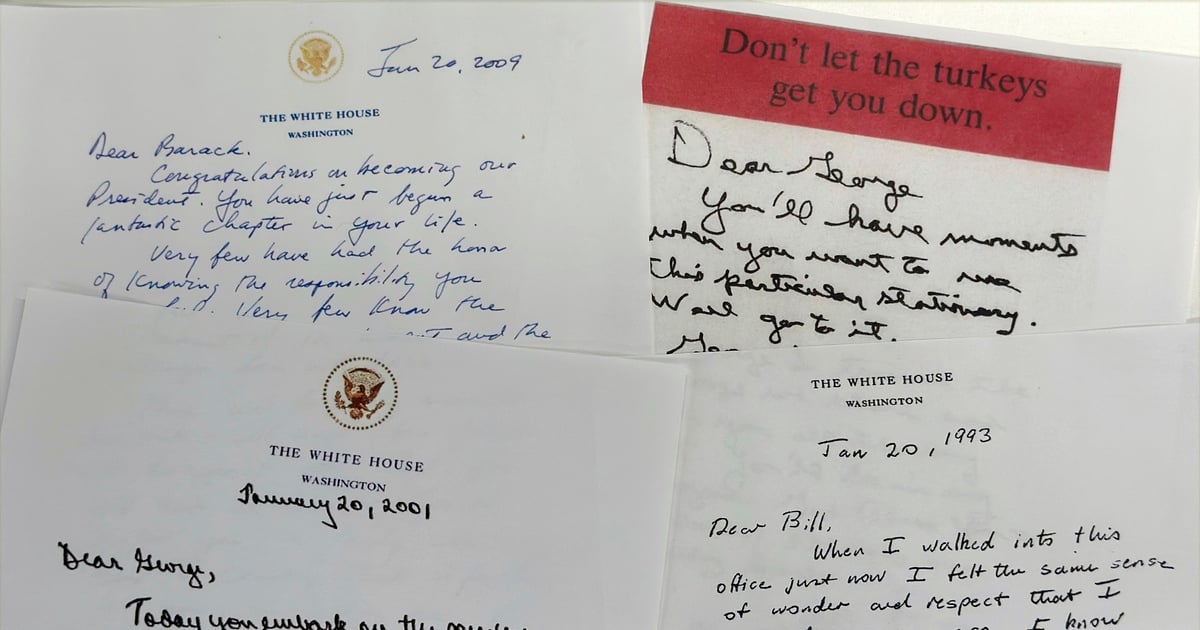 Jan 20, 2009
THE WHITE HOUSE
WASHINGTON
Dear Barack.
Congratulations on becoming our
President. You have just begun a
fantastic chapter in your life.
Very few have had the honor
of knowing the responsibility you
Very few know the
and the
Don't let the turkeys
get you down.
Dear George
You'll have moments
when you want to use
this particular stationary.
Well go to it.
THE WHITE HOUSE
WASHINGTON
January 20, 2001
Dear George,
Today you embark on the
THE WHITE HOUSE
WASHINGTON
Jan 20, 1993
Dear Bill,
When I walked into this
office just now I felt the same sense
of wonder and respect that I
I know